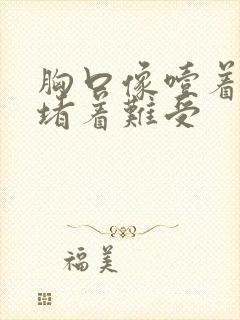 胸口像噎着
堵着難受
福美